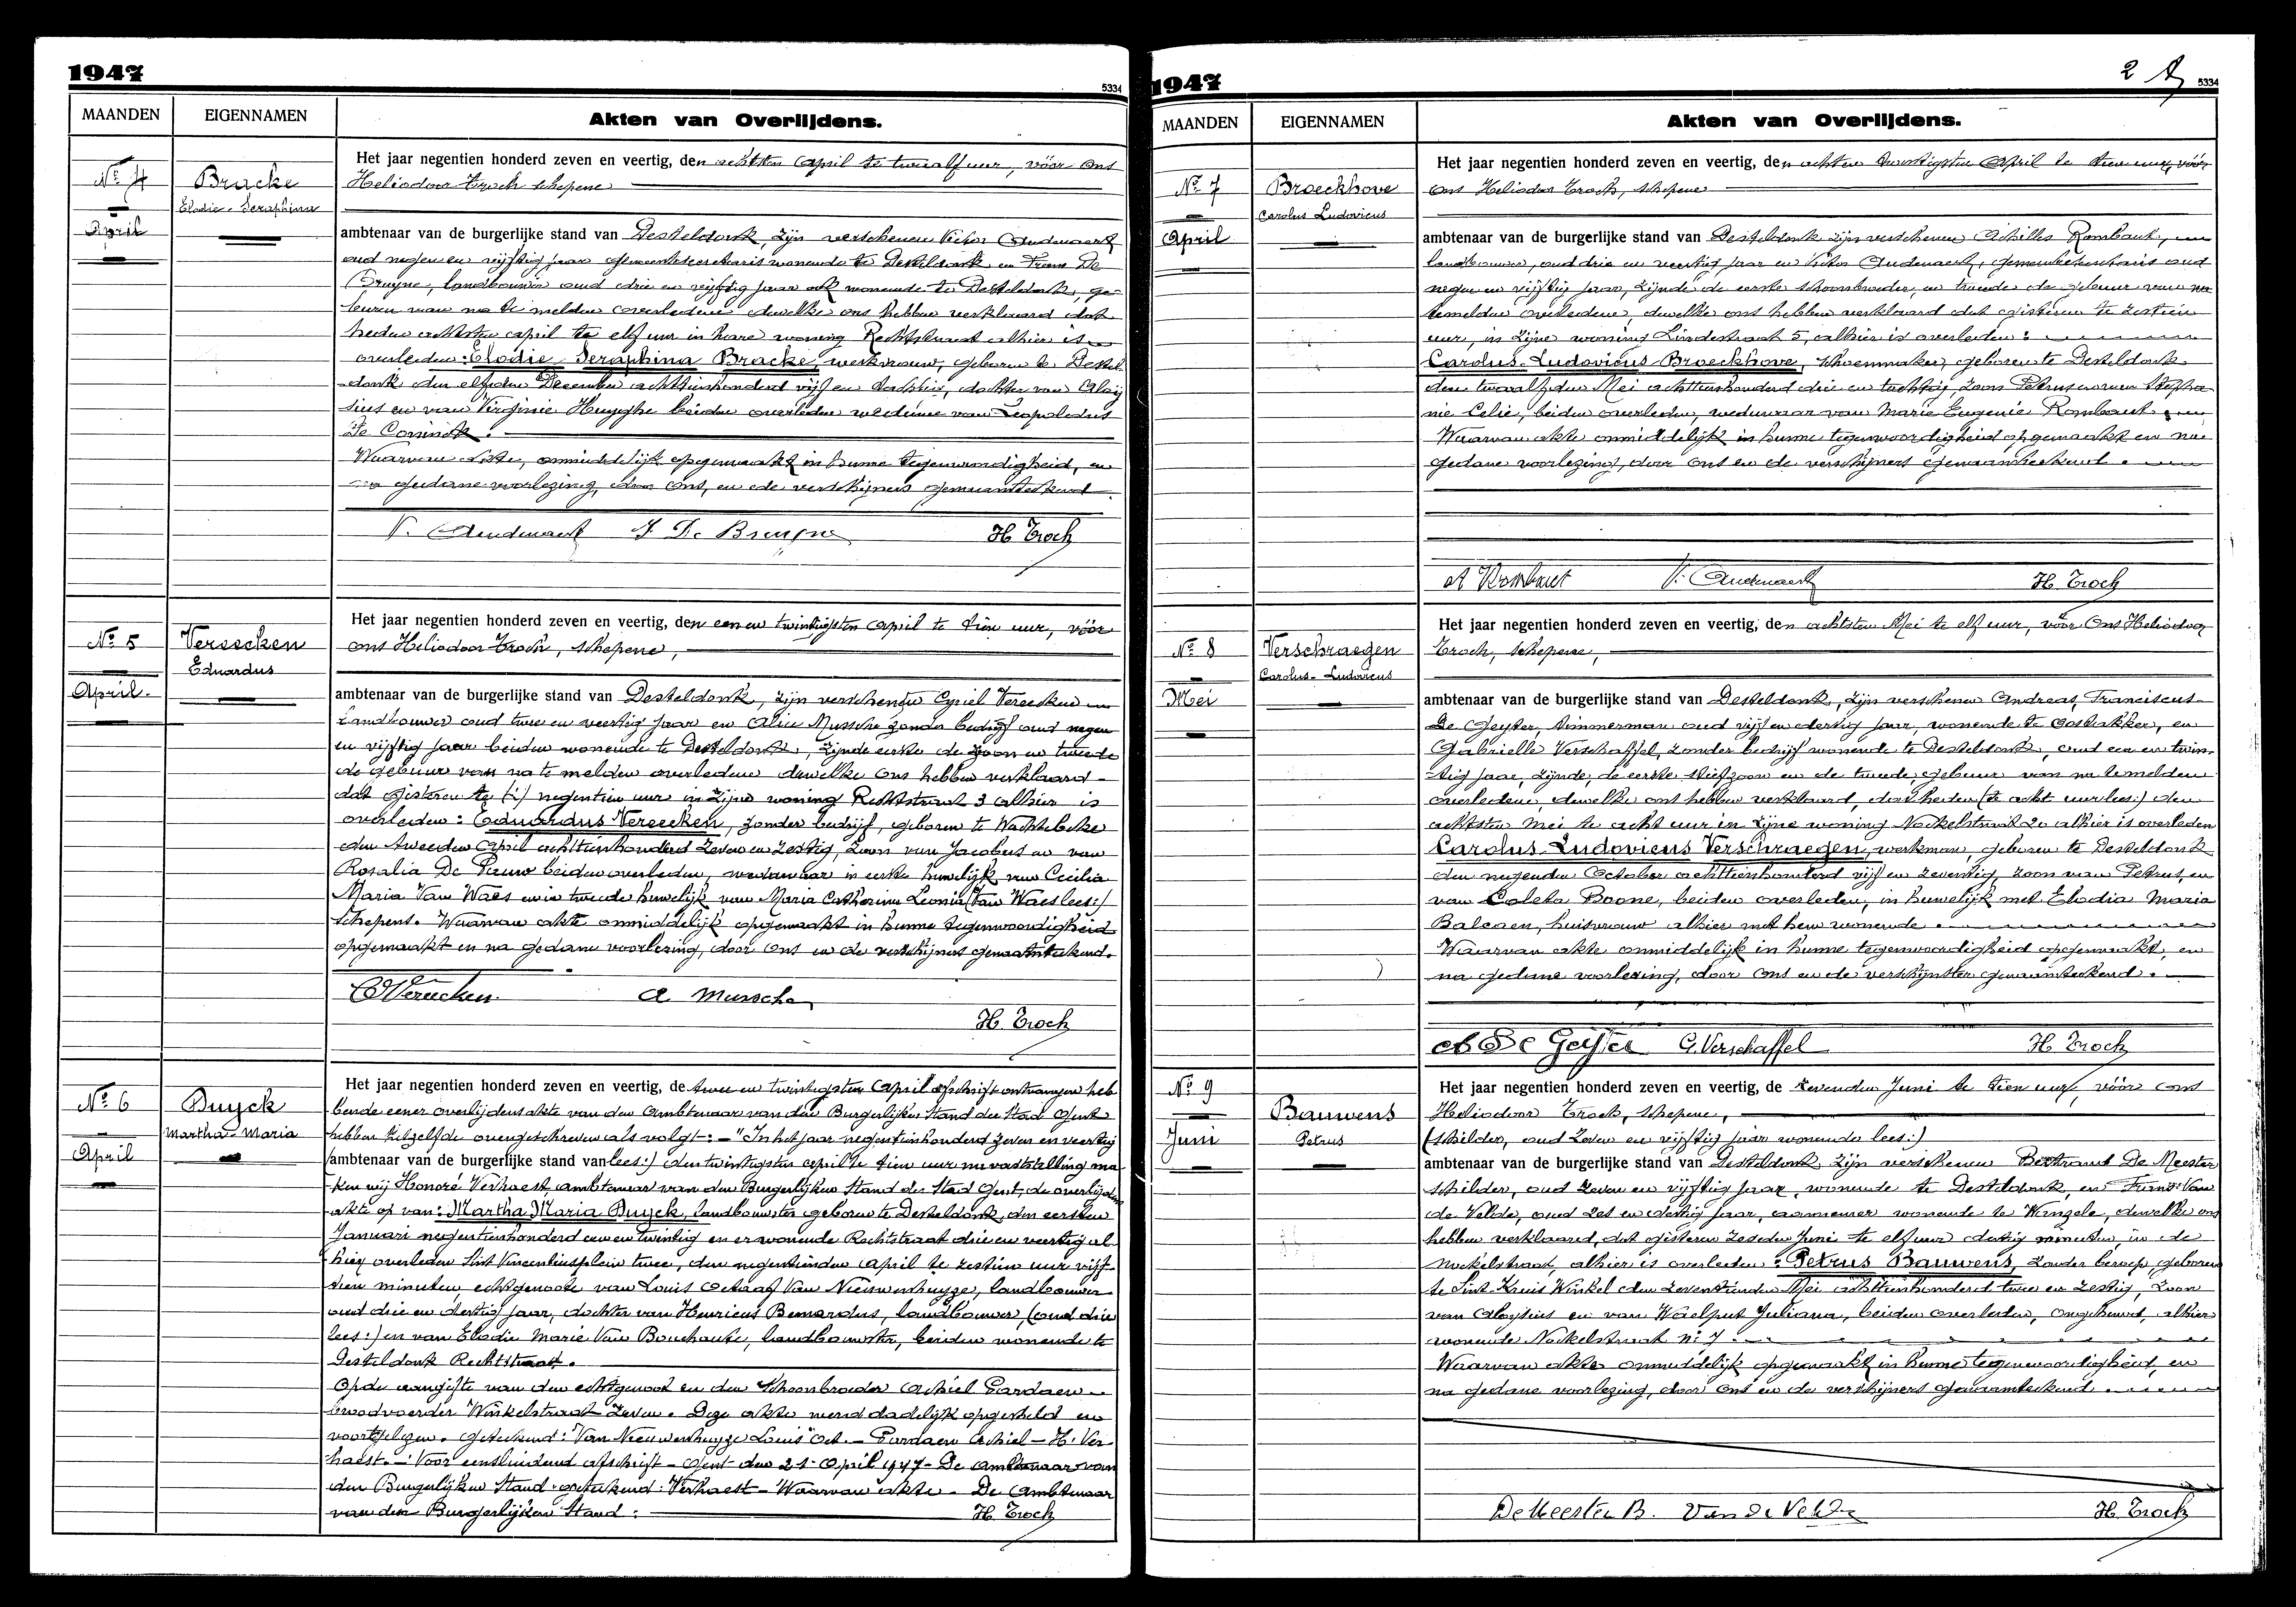 1947
5334
MAANDEN
EIGENNAMEN
Akten van Overlijdens.
Nº 4
April
Bracke
Elodie-Seraphina
Het jaar negentien honderd zeven en veertig, den achtsten April te twaalf uur, vóór ons
Heliodoor Troch schepene
ambtenaar van de burgerlijke stand van Desteldonk, zijn verschenen Victor Audenaert
oud negen en vijftig jaar gemeentesecretaris wonende te Desteldonk en Frans De
Bruyne, landbouwer oud drie en vijftig jaar ook wonende te Desteldonk, ge-
buren van na te melden overledene dewelke ons hebben verklaard dat
heden achtsten april te elf uur in hare woning Rechtstraat alhier is
overleden: Elodie Seraphina Bracke, werkvrouw, geboren te Destel-
donk den elfden December achttienhonderd vijf en tachtig, dochter van Aloy
sius en van Virginie Huyghe beiden overleden weduwe van Leopoldus
De Coninck.
Waarvan akte, onmiddelijk opgemaakt in hunne tegenwoordigheid, en
na gedane voorlezing, door ons, en de verschijners genaamteekend
V. Audenaert F De Bruyne H. Troch
Nº 5
April
Vereecken
Eduardus
Het jaar negentien honderd zeven en veertig, den een en twintigsten April te tien uur, vóór
ons Heliodoor Troch, schepene,
ambtenaar van de burgerlijke stand van Desteldonk, zijn verschenen Cyriel Vereecken
landbouwer oud twee en veertig jaar en Alice Mussche zonder bedrijf oud negen
en vijftig jaar beiden wonende te Desteldonk, zijnde eerste de zoon en tweede
de gebuur van na te melden overledene dewelke ons hebben verklaard
dat gisteren te negentien uur in zijne woning Rechtstraat 3 alhier is
overleden: Eduardus Vereecken, zonder bedrijf, geboren te Wachtebeke
den tweeden April achttienhonderd zeven en zestig, zoon van Jacobus en van
Rosalia De Pauw beiden overleden, weduwnaar in eerste huwelijk van Cecilia
Maria Van Waes en in tweede huwelijk van Maria Catharina Leonia (Van Waes lees:)
Schepens. Waarvan akte onmiddelijk opgemaakt in hunne tegenwoordigheid
opgemaakt en na gedane voorlezing, door ons en de verschijners genaamteekend.
C Vereecken A Mussche
H. Troch
Nº 6
April
Duyck
Martha-Maria
Het jaar negentien honderd zeven en veertig, de twee en twintigsten April afschrift ontvangen heb
bende eener overlijdensakte van den Ambtenaar van den Burgerlijken Stand der Stad Gent
hebben hetzelfde overgeschreven als volgt: - "In het jaar negentienhonderd zeven en veertig
ambtenaar van de burgerlijke stand van lees:) den twintigsten april te tien uur na vaststelling ma-
ken wij Honoré Verhaest, ambtenaar van den Burgerlijken Stand der Stad Gent, de overlijdens
akte op van: Martha Maria Duyck, landbouwster geboren te Desteldonk, den eersten
Januari negentienhonderd een en twintig en er wonende Rechtstraat drie en veertig al
hier overleden Sint Vincentiusplein twee, den negentienden april te zestien uur vijf-
tien minuten, echtgenoote van Louis Octaaf Van Nieuwenhuyze, landbouwer
oud drie en dertig jaar, dochter van Henricus Bernardus, landbouwer, (oud drie
lees:) en van Elodie Marie Van Bouchaute, landbouwster, beiden wonende te
Desteldonk Rechtstraat.
Op de aangifte van den echtgenoot en den schoonbroeder Achiel Pardaen
broodvoerder Winkelstraat zeven. Deze akte werd dadelijk opgesteld en
voorgelezen. geteekend: Van Nieuwenhuyze Louis Oct. - Pardaen Achiel - H. Ver
haest. - Voor eensluidend afschrift - Gent den 21 April 1947 - De ambtenaar van
den Burgerlijken Stand. geteekend: Verhaest - Waarvan akte. - De Ambtenaar
van den Burgerlijken Stand: H. Troch
1947
2
5334
MAANDEN
EIGENNAMEN
Akten van Overlijdens.
Nº 7
April
Broeckhove
Carolus Ludovicus
Het jaar negentien honderd zeven en veertig, den achten twintigsten April te tien uur, vóór
ons Heliodoor Troch, schepene
ambtenaar van de burgerlijke stand van Desteldonk zijn verschenen Achilles Rombaut,
landbouwer, oud drie en veertig jaar en Victor Audenaert, gemeentesecretaris oud
negen en vijftig jaar, zijnde de eerste schoonbroeder, en tweede de gebuur van na
temelden overledene, dewelke ons hebben verklaard dat gisteren te zestien
uur, in zijne woning Lindestraat 5, alhier is overleden:
Carolus-Ludovicus Broeckhove, schoenmaker, geboren te Desteldonk
den twaalfden Mei achttienhonderd drie en tachtig, zoon Petrus en van Stepha
nie Celie, beiden overleden, weduwnaar van Marie Eugenie Rombaut.
Waarvan akte onmiddelijk in hunne tegenwoordigheid opgemaakt en na
gedane voorlezing, door ons en de verschijners genaamteekend.
A Rombaut V. Audenaert H. Troch
Nº 8
Mei
Verschraegen
Carolus-Ludovicus
Het jaar negentien honderd zeven en veertig, den achtsten Mei te elf uur, vóór Ons Heliodoor
Troch, schepene,
ambtenaar van de burgerlijke stand van Desteldonk, zijn verschenen Andreas, Franciscus
De Geyter, timmerman oud vijf en dertig jaar, wonende te Oostakker, en
Gabrielle Verschaffel, zonder bedrijf wonende te Desteldonk, oud een en twin-
tig jaar, zijnde, de eerste stiefzoon en de tweede gebuur van na temelden
overledene, dewelke ons hebben verklaard, dat heden (te acht uur lees:) den
achtsten Mei te acht uur in zijne woning Nockelstraat 20 alhier is overleden
Carolus-Ludovicus Verschraegen, werkman, geboren te Desteldonk
den negenden October achttienhonderd vijf en zeventig, zoon van Petrus, en
van Coleta Boone, beiden overleden, in huwelijk met Elodia Maria
Balcaen, huisvrouw alhier met hem wonende.
Waarvan akte onmiddelijk in hunne tegenwoordigheid opgemaakt, en
na gedane voorlezing, door ons en de verschijnster genaamteekend.
A De Geyter G. Verschaffel H. Troch
Nº 9
Juni
Bauwens
Petrus
Het jaar negentien honderd zeven en veertig, de zevenden Juni te tien uur, vóór ons
Heliodoor Troch, schepene,
(schilder, oud zeven en vijftig jaar wonende lees:)
ambtenaar van de burgerlijke stand van Desteldonk, zijn verschenen Bertrand De Meester
schilder, oud zeven en vijftig jaar, wonende te Desteldonk, en Frans Van
de Velde, oud zes en dertig jaar, aannemer wonende te Wanzele, dewelke ons
hebben verklaard, dat gisteren zesden Juni te elf uur dertig minuten, in de
Nockelstraat, alhier is overleden: Petrus Bauwens, zonder beroep, geboren
te Sint Kruis Winkel den zeventienden Mei achttienhonderd twee en zestig, zoon
van Aloysius en van Waelput Juliana, beiden overleden, ongehuwd, alhier
wonende Nockelstraat Nº 7.
Waarvan akte onmiddelijk opgemaakt in hunne tegenwoordigheid, en
na gedane voorlezing, door ons en de verschijners genaamteekend.
DeMeester B. Van de Velde H. Troch